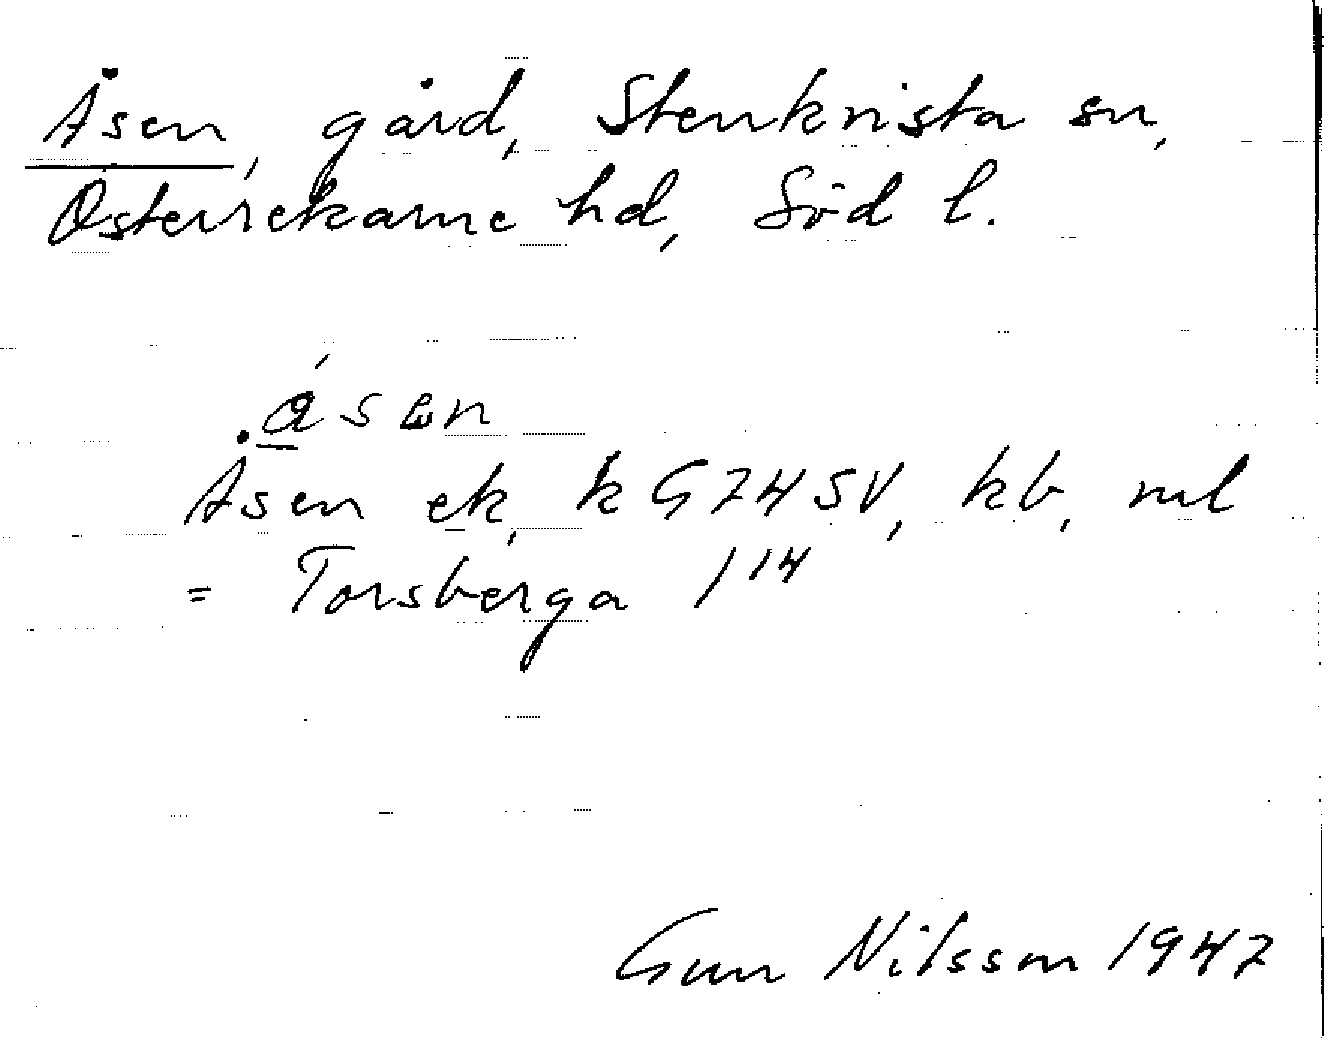 Åsen, gård, Stenkvista sn,
Österrekarne hd, Söd l.
Åsen ek, k G74SV, kb, ml
= Torsberga 1¹⁴
Gun Nilsson 1947